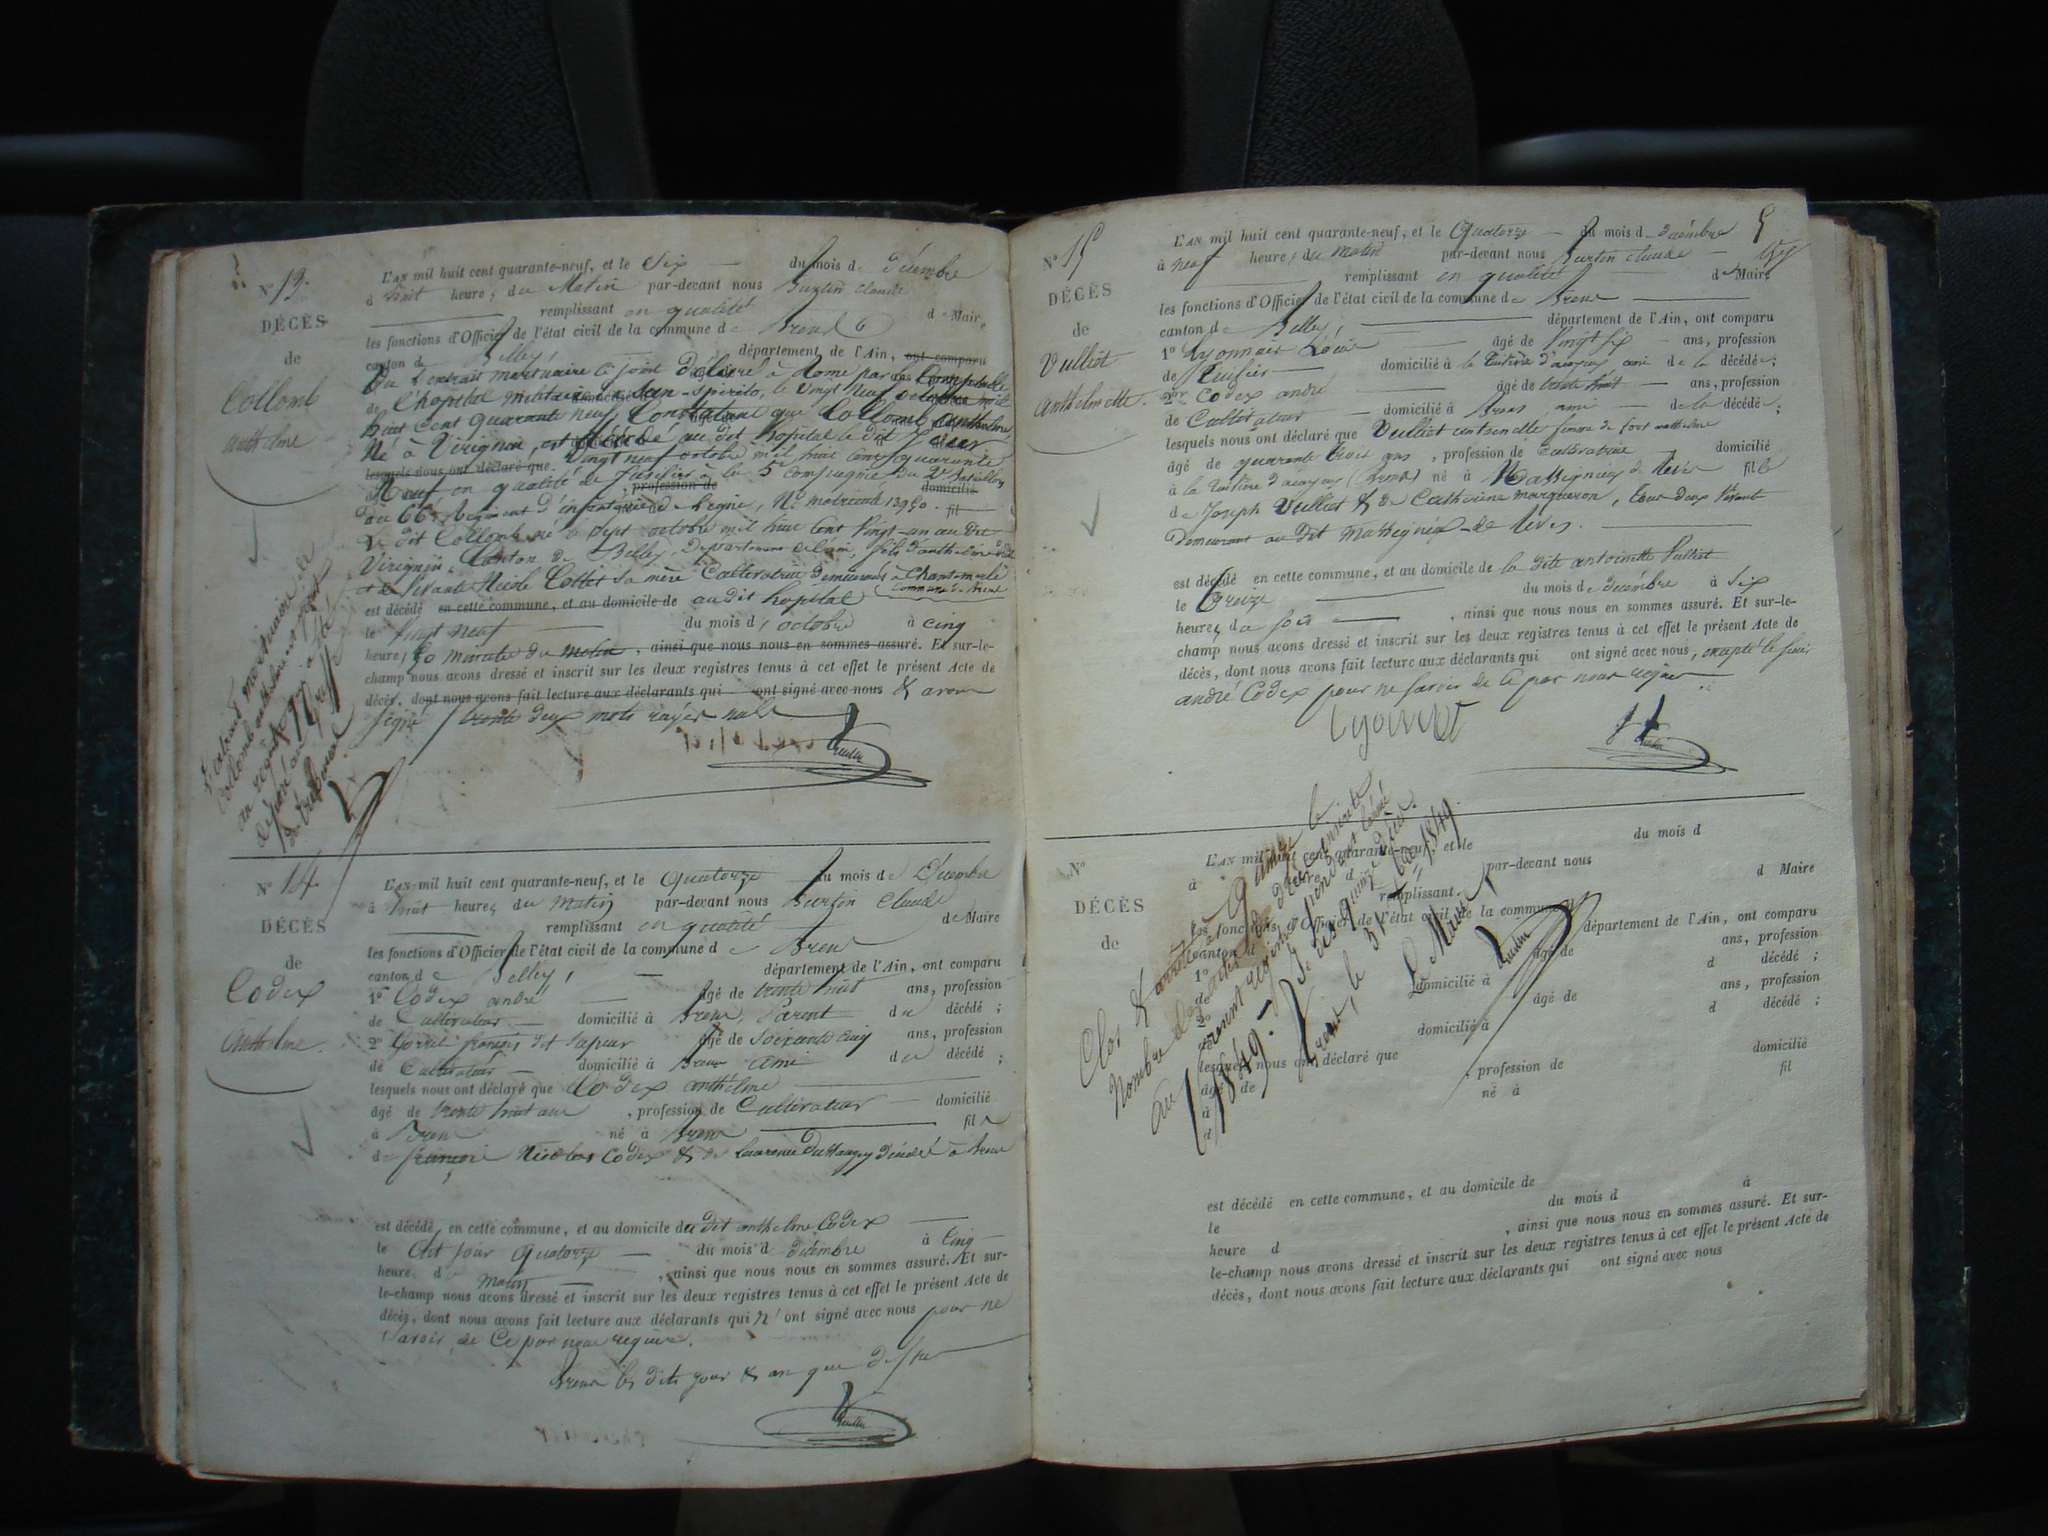 N° 13.
DÉCÈS
de
Collomb
anthelme
L'AN mil huit cent quarante-neuf, et le Six du mois de décembre
à huit heures du Matin par-devant nous Burtin Claude
remplissant en qualité de Maire
les fonctions d'Officier de l'état civil de la commune de Brens
canton de Belley, département de l'Ain, ont comparu
Vu l'extrait mortuaire ci joint délivré à Rome par le Comptable
de l'hopital militaire de San-spirito, le vingt Neuf octobre mil
huit cent quarante neuf Constatant que Collomb anthelme
Né à Virignin, est décédé au dit hopital le dit jour
lesquels nous ont déclaré que vingt neuf octobre mil huit cent quarante
Neuf en qualité de fusilier à la 5e compagnie du 2e Bataillon
profession de domicilié
du 66e Régiment d'infanterie de ligne, N° matricule 13950. fil
Le dit Collomb né le sept octobre mil huit cent vingt-un au dit
Virignin, Canton de Belley, département de l'ain, fils d'anthelme
et de vivante Nicole Collet sa mère Cultivatrice demeurant à Chantemerle
commune de Brens
est décédé en cette commune, et au domicile de au dit hopital
le vingt neuf du mois d'octobre à cinq
heures 30 minutes du matin, ainsi que nous nous en sommes assuré. Et sur-le-
champ nous avons dressé et inscrit sur les deux registres tenus à cet effet le présent Acte de
décès, dont nous avons fait lecture aux déclarants qui ont signé avec nous & avons
signé trente deux mots rayés nuls
Burtin
L'extrait mortuaire de
Collomb anthelme
au
déposé au
du tribunal
N° 14.
DÉCÈS
de
Codex
Anthelme.
L'AN mil huit cent quarante-neuf, et le Quatorze du mois de Décembre
à huit heures du Matin par-devant nous Burtin Claude
remplissant en qualité de Maire
les fonctions d'Officier de l'état civil de la commune de Brens
canton de Belley, département de l'Ain, ont comparu
1° Codex andré âgé de trente huit ans, profession
de Cultivateur domicilié à Brens, Parent du décédé ;
2° françois dit sapeur âgé de Soixante cinq ans, profession
de Cultivateur domicilié à Brens ami du décédé ;
lesquels nous ont déclaré que Codex anthelme
âgé de trente huit ans, profession de Cultivateur domicilié
à Brens né à Brens fils
de Nicolas Codex & de à Brens
est décédé en cette commune, et au domicile du dit anthelme Codex
le dit jour Quatorze du mois de décembre à Cinq
heures du matin, ainsi que nous nous en sommes assuré. Et sur-
le-champ nous avons dressé et inscrit sur les deux registres tenus à cet effet le présent Acte de
décès, dont nous avons fait lecture aux déclarants qui n'ont signé avec nous pour ne
Savoir de Ce par nous requis.
Brens les dits jour & an que dessus
Burtin
N° 15
DÉCÈS
de
Vulliot
anthelmette
L'AN mil huit cent quarante-neuf, et le Quatorze du mois de décembre
à neuf heures du matin par-devant nous Burtin claude
remplissant en qualité de Maire
les fonctions d'Officier de l'état civil de la commune de Brens
canton de Belley, département de l'Ain, ont comparu
1° Lyonnais Louis âgé de vingt six ans, profession
de domicilié à la ami de la décédée ;
2° Codex andré âgé de trente huit ans, profession
de Cultivateur domicilié à Brens ami de la décédée ;
lesquels nous ont déclaré que Vulliot antoinette femme de fort anthelme
âgé de quarante trois ans, profession de Cultivatrice domicilié
à la (Brens) né à Massignieu de Rives fille
de Joseph Vulliot & de Catherine marqueron, tous deux vivants
demeurant au dit Massignieu-de Rives.
est décédé en cette commune, et au domicile de la dite antoinette Vulliot
le treize du mois de décembre à Six
heures du soir, ainsi que nous nous en sommes assuré. Et sur-le-
champ nous avons dressé et inscrit sur les deux registres tenus à cet effet le présent Acte de
décès, dont nous avons fait lecture aux déclarants qui ont signé avec nous, excepté le
andré Codex pour ne savoir de ce par nous requis
Burtin
N°
DÉCÈS
de
L'AN mil huit cent quarante-neuf, et le du mois d
à heure d par-devant nous
remplissant d Maire
les fonctions d'Officier de l'état civil de la commune d
canton d département de l'Ain, ont comparu
1° âgé de ans, profession
de domicilié à d décédé ;
2° âgé de ans, profession
de domicilié à d décédé ;
lesquels nous ont déclaré que
âgé de , profession de domicilié
à né à fil
d
est décédé en cette commune, et au domicile de
le du mois d à
heure d , ainsi que nous nous en sommes assuré. Et sur-
le-champ nous avons dressé et inscrit sur les deux registres tenus à cet effet le présent Acte de
décès, dont nous avons fait lecture aux déclarants qui ont signé avec nous
Clos & arrêté à Quinze le
Nombre des actes de décès inscrits
au présent registre pendant l'année
1849.
Brens, le 31 Xbre 1849.
Le Maire
Burtin